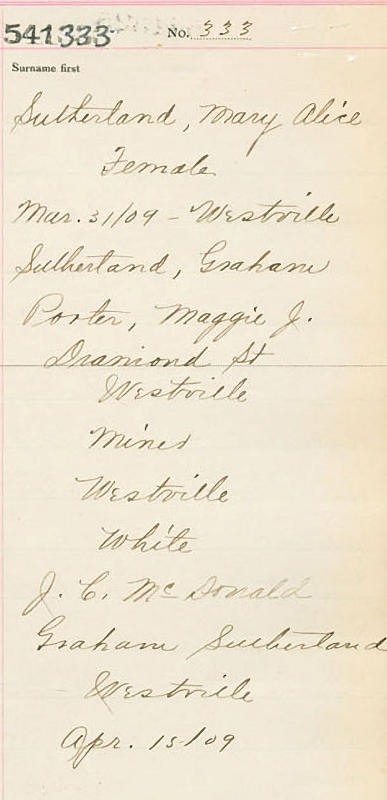 541333 No. 333
Surname first
Sutherland, Mary Alice
Female
Mar. 31/09 - Westville
Sutherland, Graham
Porter, Maggie J.
Dramond St
Westville
Miner
Westville
White
J. C. McDonald
Graham Sutherland
Westville
Apr. 15/09